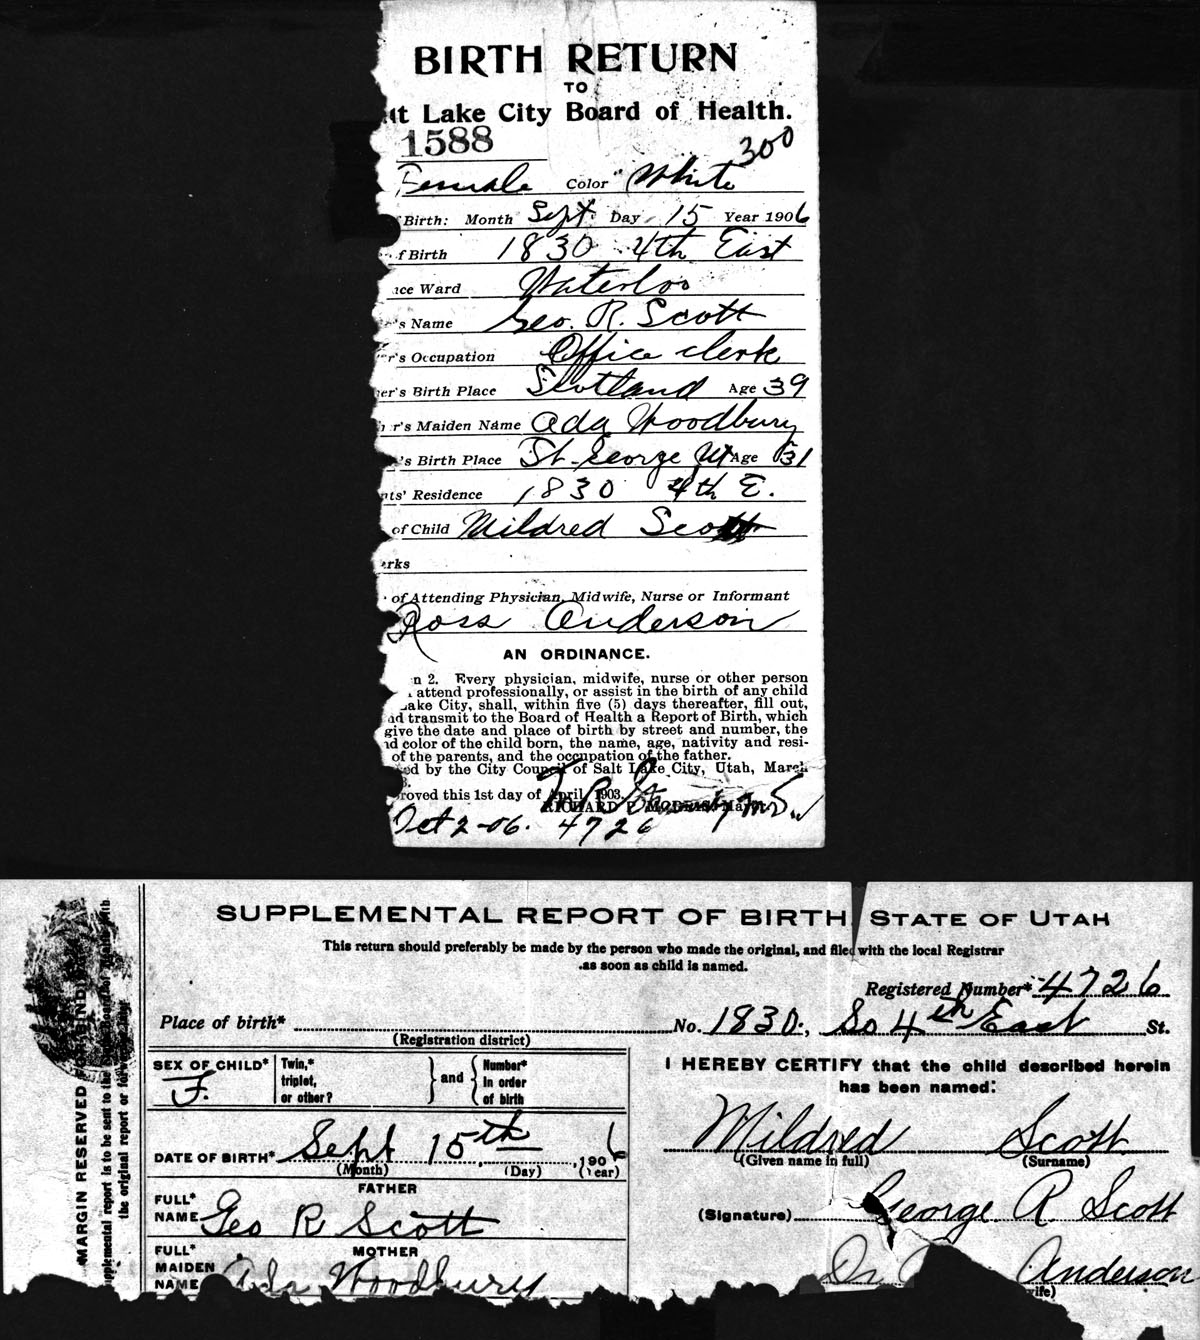 BIRTH RETURN
TO
t Lake City Board of Health.
1588
300
Female Color White
Birth: Month Sept Day 15 Year 1906
f Birth 1830 4th East
ce Ward Waterloo
's Name Geo. R. Scott
r's Occupation Office clerk
er's Birth Place Scotland Age 39
r's Maiden Name Ada Woodbury
's Birth Place St. George Ut Age 31
nts' Residence 1830 4th E.
of Child Mildred Scott
rks
of Attending Physician, Midwife, Nurse or Informant
Ross Anderson
AN ORDINANCE.
n 2. Every physician, midwife, nurse or other person
attend professionally, or assist in the birth of any child
ake City, shall, within five (5) days thereafter, fill out,
nd transmit to the Board of Health a Report of Birth, which
give the date and place of birth by street and number, the
nd color of the child born, the name, age, nativity and resi-
of the parents, and the occupation of the father.
ed by the City Council of Salt Lake City, Utah, March
roved this 1st day of April, 1903.
RICHARD P. MORRIS, Mayor.
Oct 2-06. 4726
SUPPLEMENTAL REPORT OF BIRTH STATE OF UTAH
This return should preferably be made by the person who made the original, and filed with the local Registrar
as soon as child is named.
Registered Number* 4726
Place of birth* No. 1830, So 4th East St.
(Registration district)
SEX OF CHILD* F.
Twin,* triplet, or other? and Number* in order of birth
DATE OF BIRTH* Sept 15th 1906
(Month) (Day) (Year)
FATHER
FULL* NAME Geo R Scott
MOTHER
FULL* MAIDEN NAME Ada Woodbury
I HEREBY CERTIFY that the child described herein
has been named:
Mildred Scott
(Given name in full) (Surname)
(Signature) George R Scott
Anderson
wife)
MARGIN RESERVED
pplemental report is to be sent to the
the original report or